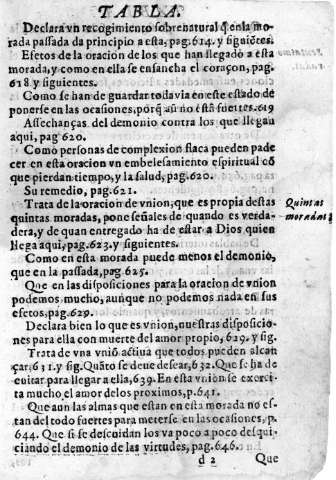 TABLA.
Declara vn recogimiento sobrenatural q̃ en la mo-
rada passada da principio a esta, pag.614. y siguiẽtes.
Efetos de la oracion de los que han llegado a esta
morada, y como en ella se ensancha el coraçon, pag.
618 y siguientes.
Como se han de guardar todavia en este estado de
ponerse en las ocasiones, porq̃ aũ no está fuertes.619
Assechanças del demonio contra los que llegan
aqui, pag 620.
Como personas de complexion flaca pueden pade
cer en esta oracion vn embelesamiento espiritual cõ
que pierdan tiempo, y la salud, pag.620.
Su remedio, pag.621.
Trata de la oracion de vnion, que es propia destas
Quintas
quintas moradas, pone señales de quando es verda-
moradas
dera, y de quan entregado ha de estar a Dios quien
llega aqui, pag.623. y siguientes.
Como en esta morada puede menos el demonio,
que en la passada, pag.625.
Que en las disposiciones para la oracion de vnion
podemos mucho, aunque no podemos nada en sus
efetos, pag.629.
Declara bien lo que es vnion, nuestras disposicio
nes para ella con muerte del amor propio, 629. y sig.
Trata de vna vniõ actiua que todos pueden alcan
çar, 631. y sig. Quãto se deue desear, 632. Que se ha de
euitar para llegar a ella, 639. En esta vniõn se exerci
ta mucho el amor de los proximos, p.641.
Que aun las almas que estan en esta morada no es-
tan del todo fuertes para meterse en las ocasiones, p.
644. Que si se descuidan los va poco a poco desqui-
ciando el demonio de las virtudes, pag.646.
d 2 Que